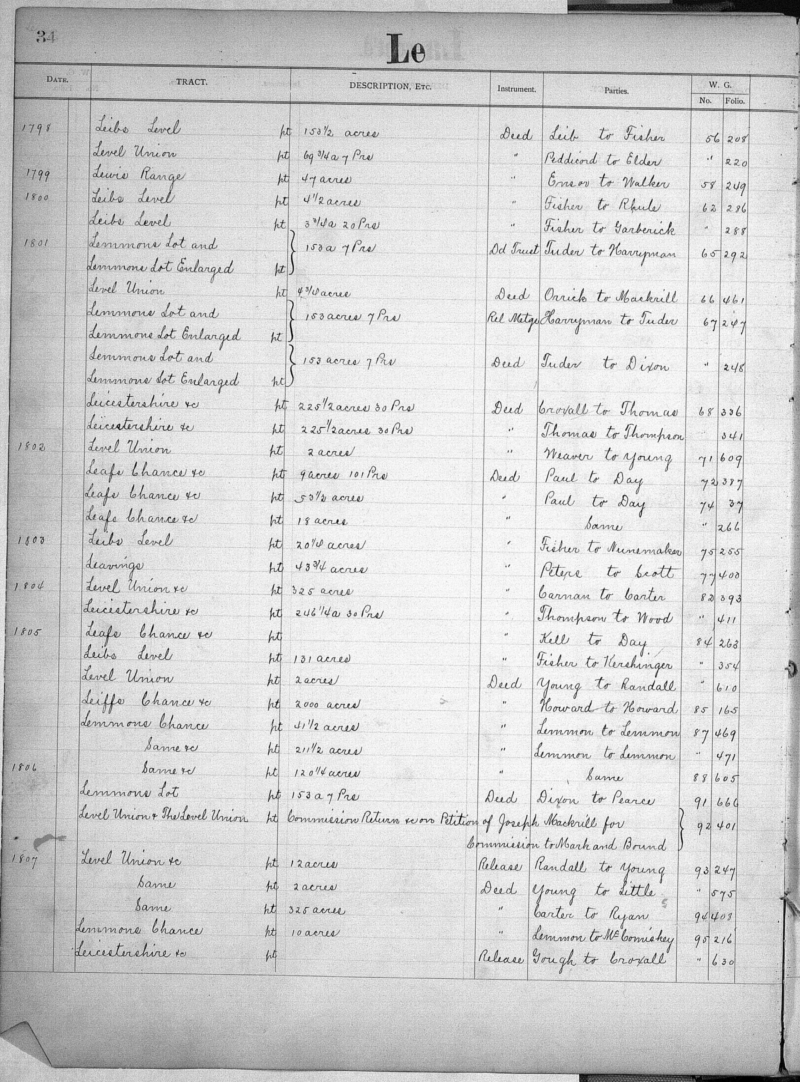 34
Le
DATE. TRACT. DESCRIPTION, ETC. Instrument. Parties. W. G.
No. Folio.
1798 Leibs Level pt 153 1/2 acres Deed Leib to Fisher 56 208
Level Union pt 69 3/4 a 7 Prs " Peddicord to Elder " 220
1799 Lewis Range pt 47 acres " Ensor to Walker 58 249
1800 Leibs Level pt 4 1/2 acres " Fisher to Rhule 62 286
Leibs Level pt 3 3/4 a 20 Prs " Fisher to Garberick " 288
1801 Lemmons Lot and
Lemmons Lot Enlarged pt } 153 a 7 Prs Dd Trust Tuder to Harryman 65 292
Level Union pt 4 3/4 acres Deed Orrick to Mackrill 66 461
Lemmons Lot and
Lemmons Lot Enlarged pt } 153 acres 7 Prs Rel Mtge Harryman to Tuder 67 247
Lemmons Lot and
Lemmons Lot Enlarged pt } 153 acres 7 Prs Deed Tuder to Dixon " 248
Leicestershire &c pt 225 1/2 acres 30 Prs Deed Croxall to Thomas 68 336
Leicestershire &c pt 225 1/2 acres 30 Prs " Thomas to Thompson 341
1802 Level Union pt 2 acres " Weaver to Young 71 609
Leafs Chance &c pt 9 acres 101 Prs Deed Paul to Day 72 387
Leafs Chance &c pt 53 1/2 acres " Paul to Day 74 37
Leafs Chance &c pt 18 acres " Same " 266
1803 Leibs Level pt 20 1/8 acres " Fisher to Nunemaker 75 255
Leavings pt 43 3/4 acres " Peters to Scott 77 403
1804 Level Union &c pt 325 acres " Carnan to Carter 82 393
Leicestershire &c pt 246 1/4 a 30 Prs " Thompson to Wood " 411
1805 Leafs Chance &c pt " Kell to Day 84 263
Leibs Level pt 131 acres " Fisher to Kershinger " 354
Level Union pt 2 acres Deed Young to Randall " 610
Leiffs Chance &c pt 2000 acres " Howard to Howard 85 165
Lemmons Chance pt 41 1/2 acres " Lemmon to Lemmon 87 469
Same &c pt 211 1/2 acres " Lemmon to Lemmon " 471
1806 Same &c pt 120 1/4 acres " Same 88 605
Lemmons Lot pt 153 a 7 Prs Deed Dixon to Pearce 91 666
Level Union & The Level Union pt Commission Return &c on Petition of Joseph Mackrill for
Commission to Mark and Bound } 92 401
1807 Level Union &c pt 12 acres Release Randall to Young 93 247
Same pt 2 acres Deed Young to Little " 575
Same pt 325 acres " Carter to Ryan 94 403
Lemmons Chance pt 10 acres " Lemmon to McComiskey 95 216
Leicestershire &c pt Release Gough to Croxall " 630